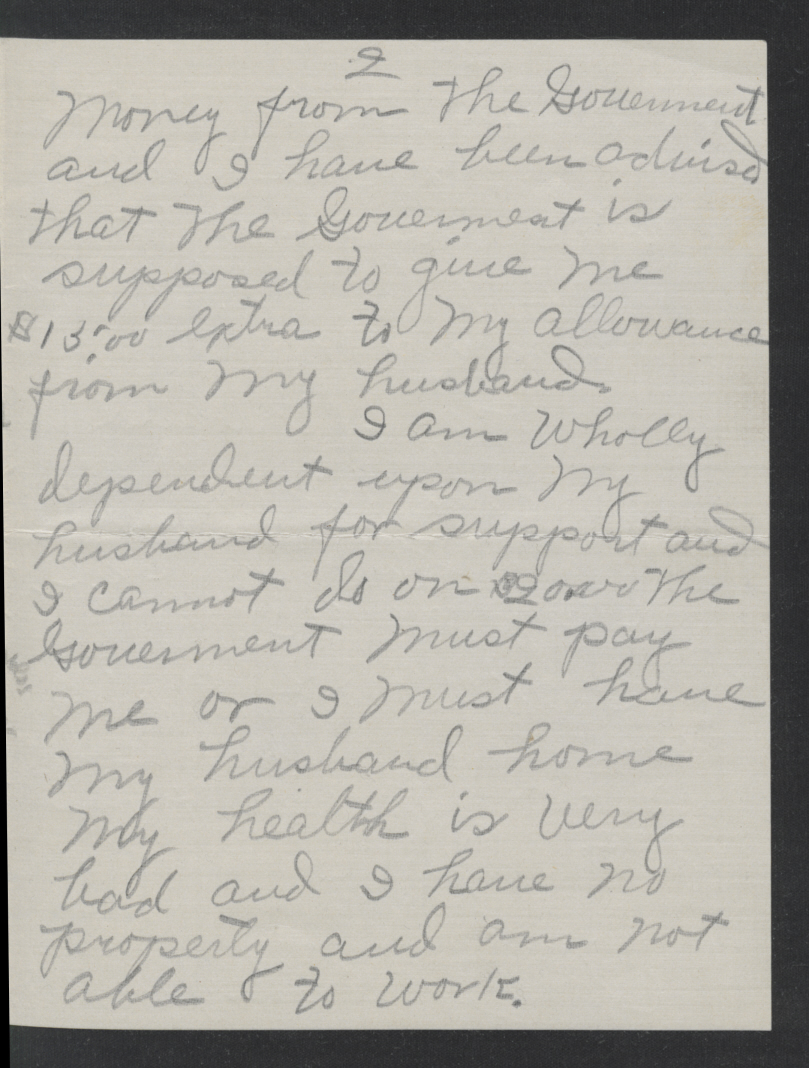 2
Money from The Government
and I have been advised
that The Government is
supposed to give me
$15.00 extra to My allowance
from My husband.
I am Wholly
dependent upon My
husband for support and
I cannot do on The
Government Must pay
me or I Must have
My husband home
My health is very
bad and I have no
property and am not
able to work.